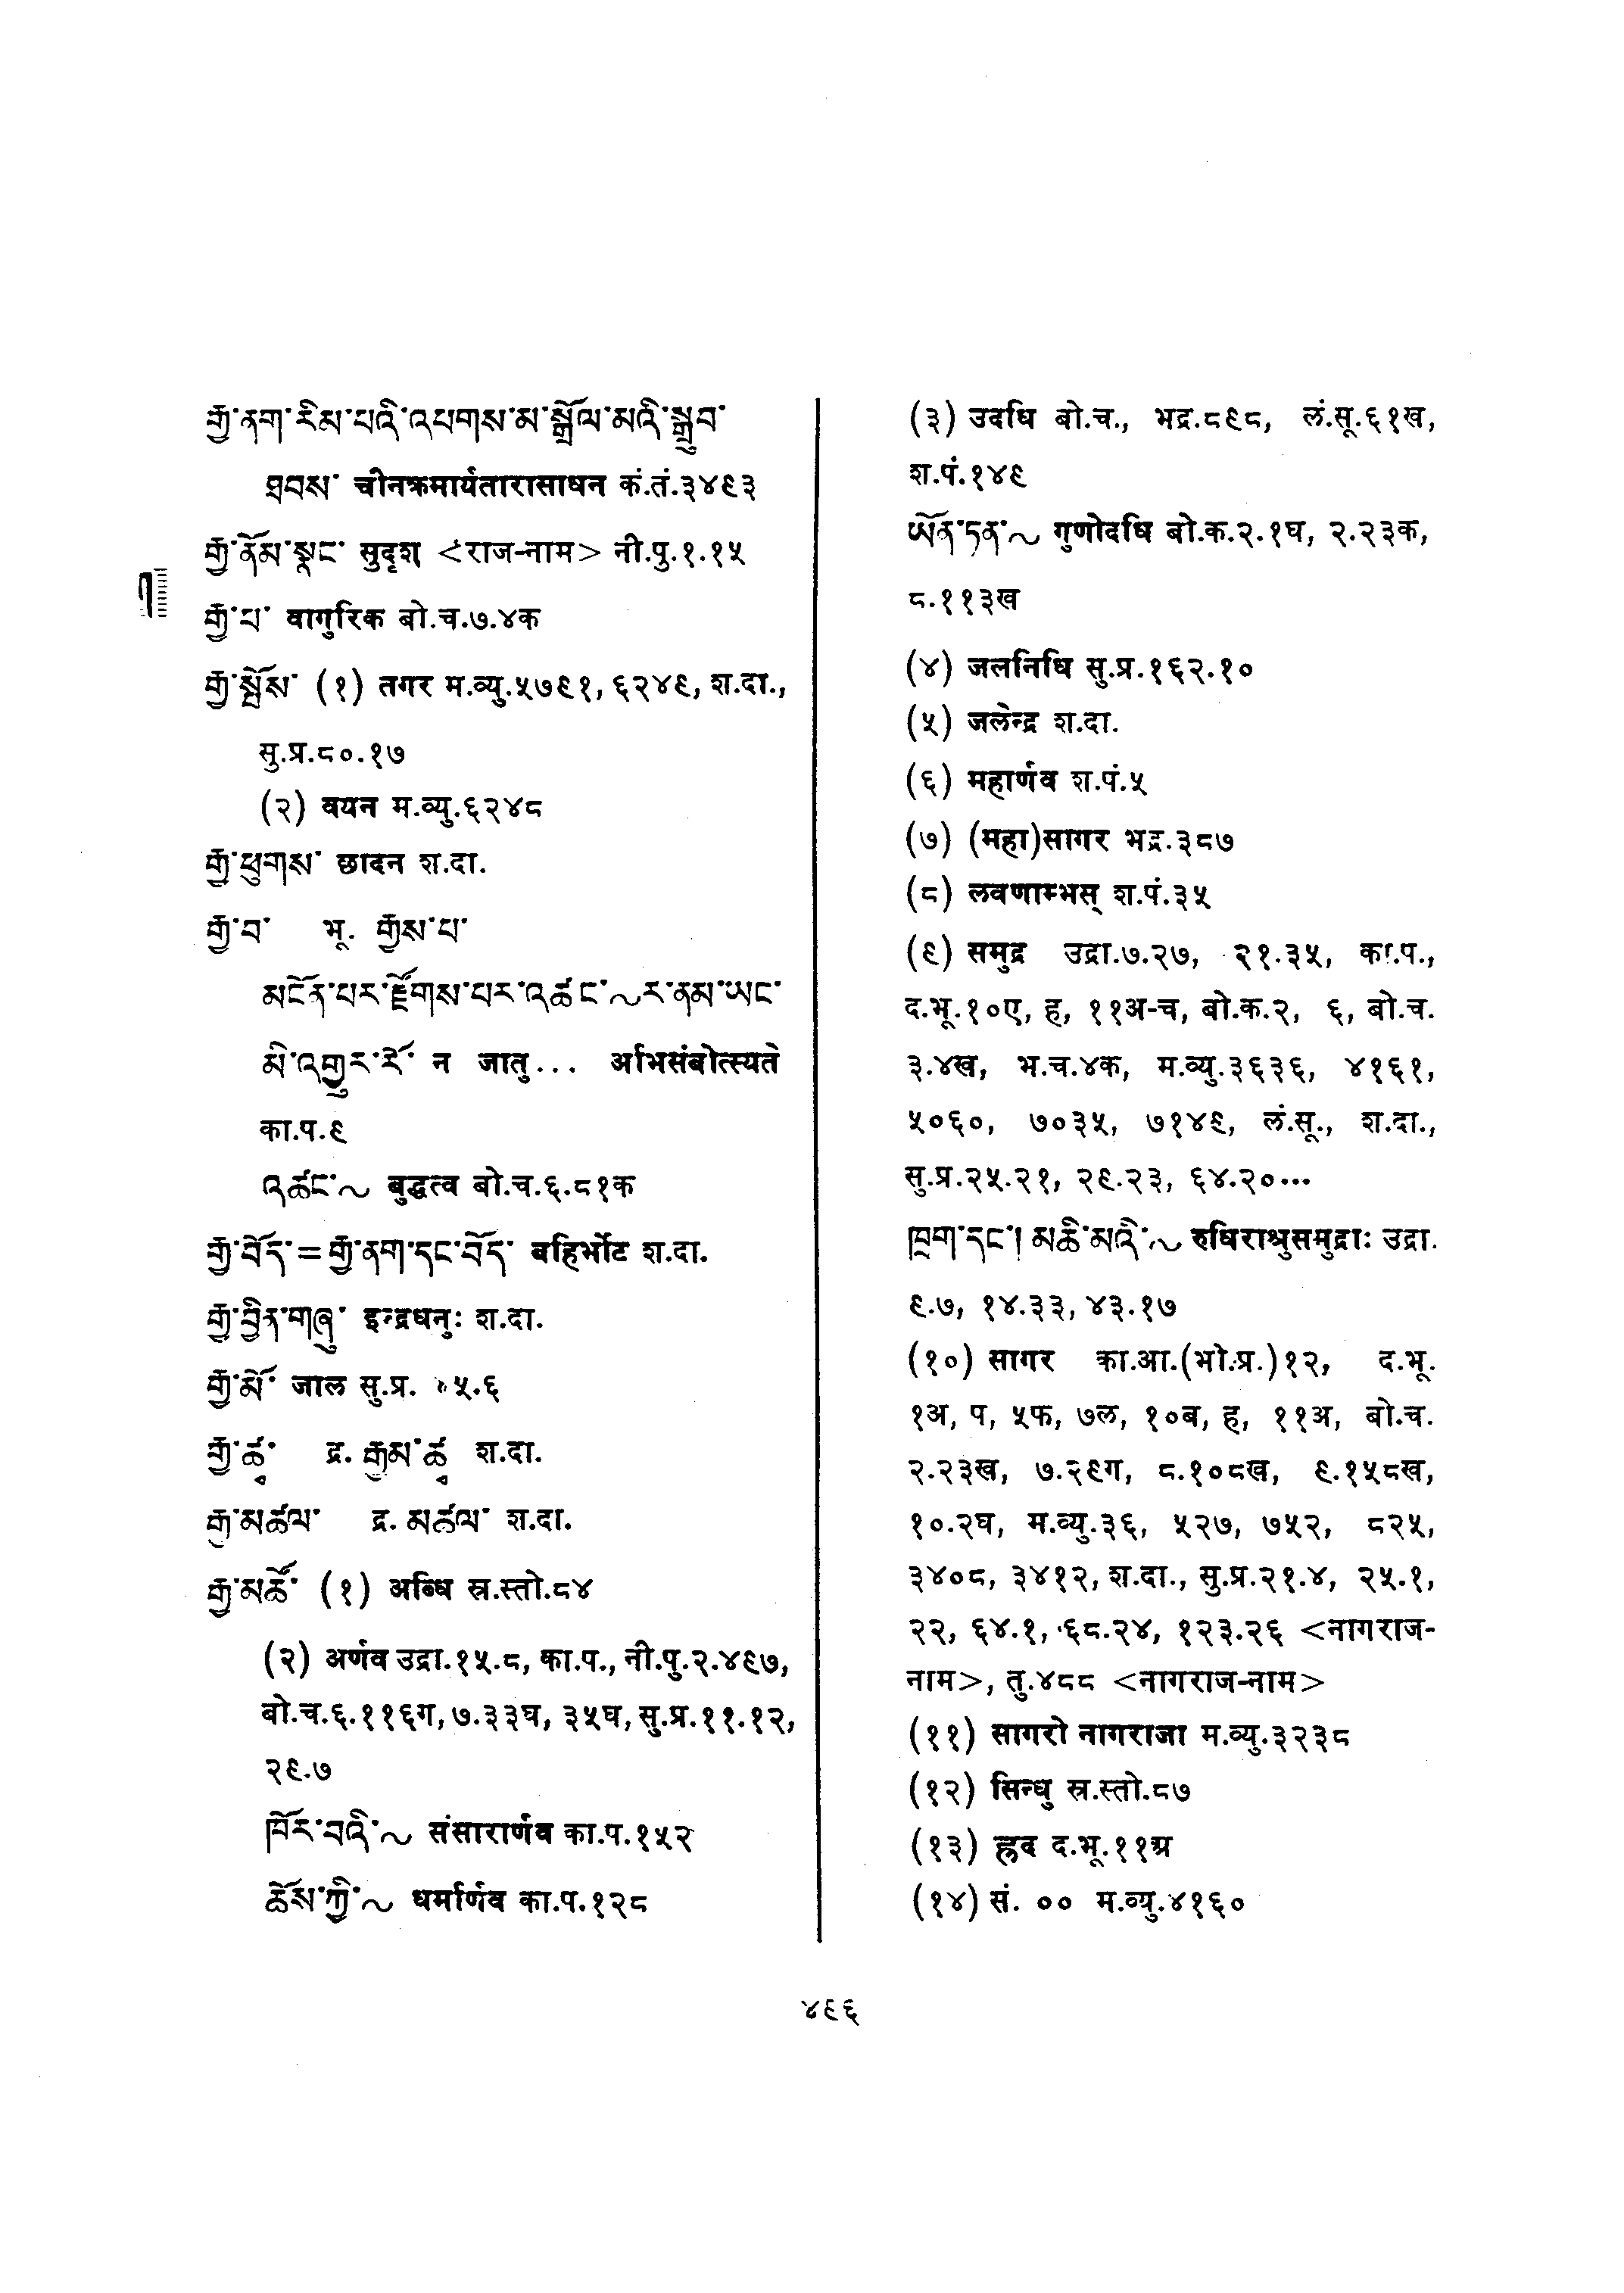 རྒྱ་ནག་རིམ་པའི་འཕགས་མ་སྒྲོལ་མའི་སྒྲུབ་
ཐབས་ चीनक्रमार्यतारासाधन कं.तं.३४९३
རྒྱ་ནོམ་སྣང་ सुदृश् <राज-नाम> नी.पु.१.१५
རྒྱ་པ་ वागुरिक बो.च.७.४क
རྒྱ་སྤོས་ (१) तगर म.व्यु.५७९१, ६२४९, श.दा.,
सु.प्र.८०.१७
(२) वयन म.व्यु.६२४८
རྒྱ་ཕུགས་ छादन श.दा.
རྒྱ་བ་ भू. རྒྱས་པ་
མངོན་པར་རྫོགས་པར་འཚང་~ར་ནམ་ཡང་
མི་འགྱུར་རོ་ न जातु... अभिसंबोत्स्यते
का.प.९
འཚང་~ बुद्धत्व बो.च.६.८१क
རྒྱ་བོད་=རྒྱ་ནག་དང་བོད་ बहिर्भोट श.दा.
རྒྱ་བྱིན་གཞུ་ इन्द्रधनुः श.दा.
རྒྱ་མོ་ जाल सु.प्र. ५.६
རྒྱ་ཚྭ་ द्र. རྒྱམ་ཚྭ श.दा.
རྒྱ་མཚལ་ द्र. མཚལ་ श.दा.
རྒྱ་མཚོ་ (१) अब्धि स्र.स्तो.८४
(२) अर्णव उद्रा.१५.८, का.प., नी.पु.२.४९७,
बो.च.६.११६ग, ७.३३घ, ३५घ, सु.प्र.११.१२,
२९.७
ཁོར་བའི་~ संसारार्णव का.प.१५२
ཆོས་ཀྱི་~ धर्मार्णव का.प.१२८
(३) उदधि बो.च., भद्र.८९८, लं.सू.६१ख,
श.पं.१४९
ཡོན་ཏན་~ गुणोदधि बो.क.२.१घ, २.२३क,
८.११३ख
(४) जलनिधि सु.प्र.१६२.१०
(५) जलेन्द्र श.दा.
(६) महार्णव श.पं.५
(७) (महा)सागर भद्र.३८७
(८) लवणाम्भस् श.पं.३५
(९) समुद्र उद्रा.७.२७, २१.३५, का.प.,
द.भू.१०ए, ह, ११अ-च, बो.क.२, ६, बो.च.
३.४ख, भ.च.४क, म.व्यु.३६३६, ४१६१,
५०६०, ७०३५, ७१४९, लं.सू., श.दा.,
सु.प्र.२५.२१, २९.२३, ६४.२०...
ཁྲག་དང་། མཆི་མའི་~ रुधिराश्रुसमुद्राः उद्रा.
९.७, १४.३३, ४३.१७
(१०) सागर का.आ.(भो.प्र.)१२, द.भू.
१अ, प, ५फ, ७ल, १०ब, ह, ११अ, बो.च.
२.२३ख, ७.२९ग, ८.१०८ख, ९.१५८ख,
१०.२घ, म.व्यु.३६, ५२७, ७५२, ८२५,
३४०८, ३४१२, श.दा., सु.प्र.२१.४, २५.१,
२२, ६४.१, ६८.२४, १२३.२६ <नागराज-
नाम>, तु.४८८ <नागराज-नाम>
(११) सागरो नागराजा म.व्यु.३२३८
(१२) सिन्धु स्र.स्तो.८७
(१३) ह्रद द.भू.११अ
(१४) सं. ०० म.व्यु.४१६०
४९६